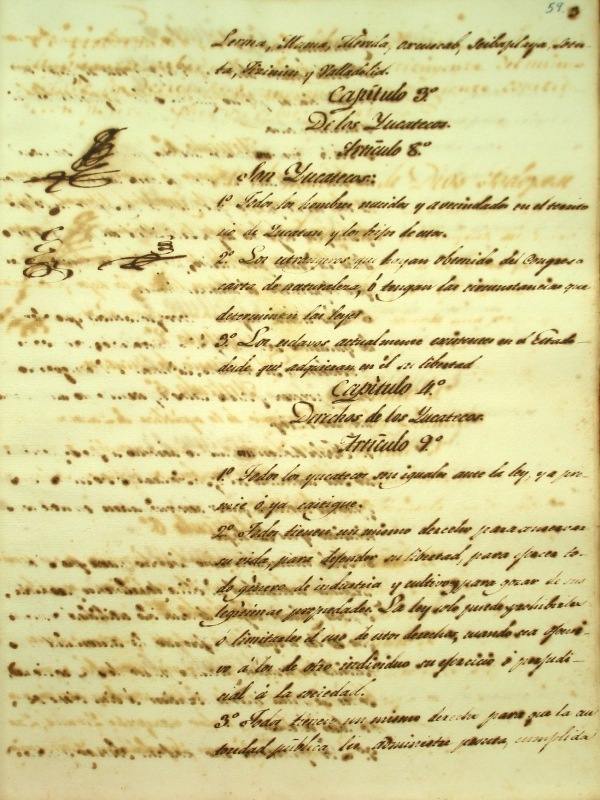 59.
Lerma, Mama, Mérida, Oxcucab, Seibaplaya, Sotu-
ta, Tizimin y Valladolid.
Capítulo 3º
De los Yucatecos.
Artículo 8º
Son Yucatecos:
1º Todos los hombres nacidos y avecindados en el territo-
rio de Yucatan y los hijos de estos.
2º Los extrangeros que hayan obtenido del Congreso
carta de naturaleza, ó tengan las circunstancias que
determinen las leyes
3º Los esclavos actualmente existentes en el Estado
desde que adquieran en él su libertad
Capítulo 4º
Derechos de los Yucatecos.
Artículo 9º
1º Todos los yucatecos son iguales ante la ley, ya pre-
mie ó ya castigue.
2º Todos tienen un mismo derecho para conservar
su vida, para defender su libertad, para ejercer to-
do género de industria y cultivo, y para gozar de sus
legítimas propiedades. La ley solo puede prohibirles
ó limitarles el uso de estos derechos, cuando sea ofensi-
vo á los de otro individuo su ejercicio ó perjudi-
cial á la sociedad.
3º Todos tienen un mismo derecho para que la au-
toridad pública les administre pronta, cumplida